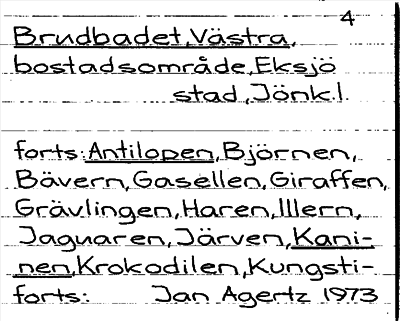 4
Brudbadet, Västra,
bostadsområde, Eksjö
stad, Jönk.l.
forts: Antilopen, Björnen,
Bävern, Gasellen, Giraffen,
Grävlingen, Haren, Illern,
Jaguaren, Järven, Kani-
nen, Krokodilen, Kungsti-
forts: Jan Agertz 1973